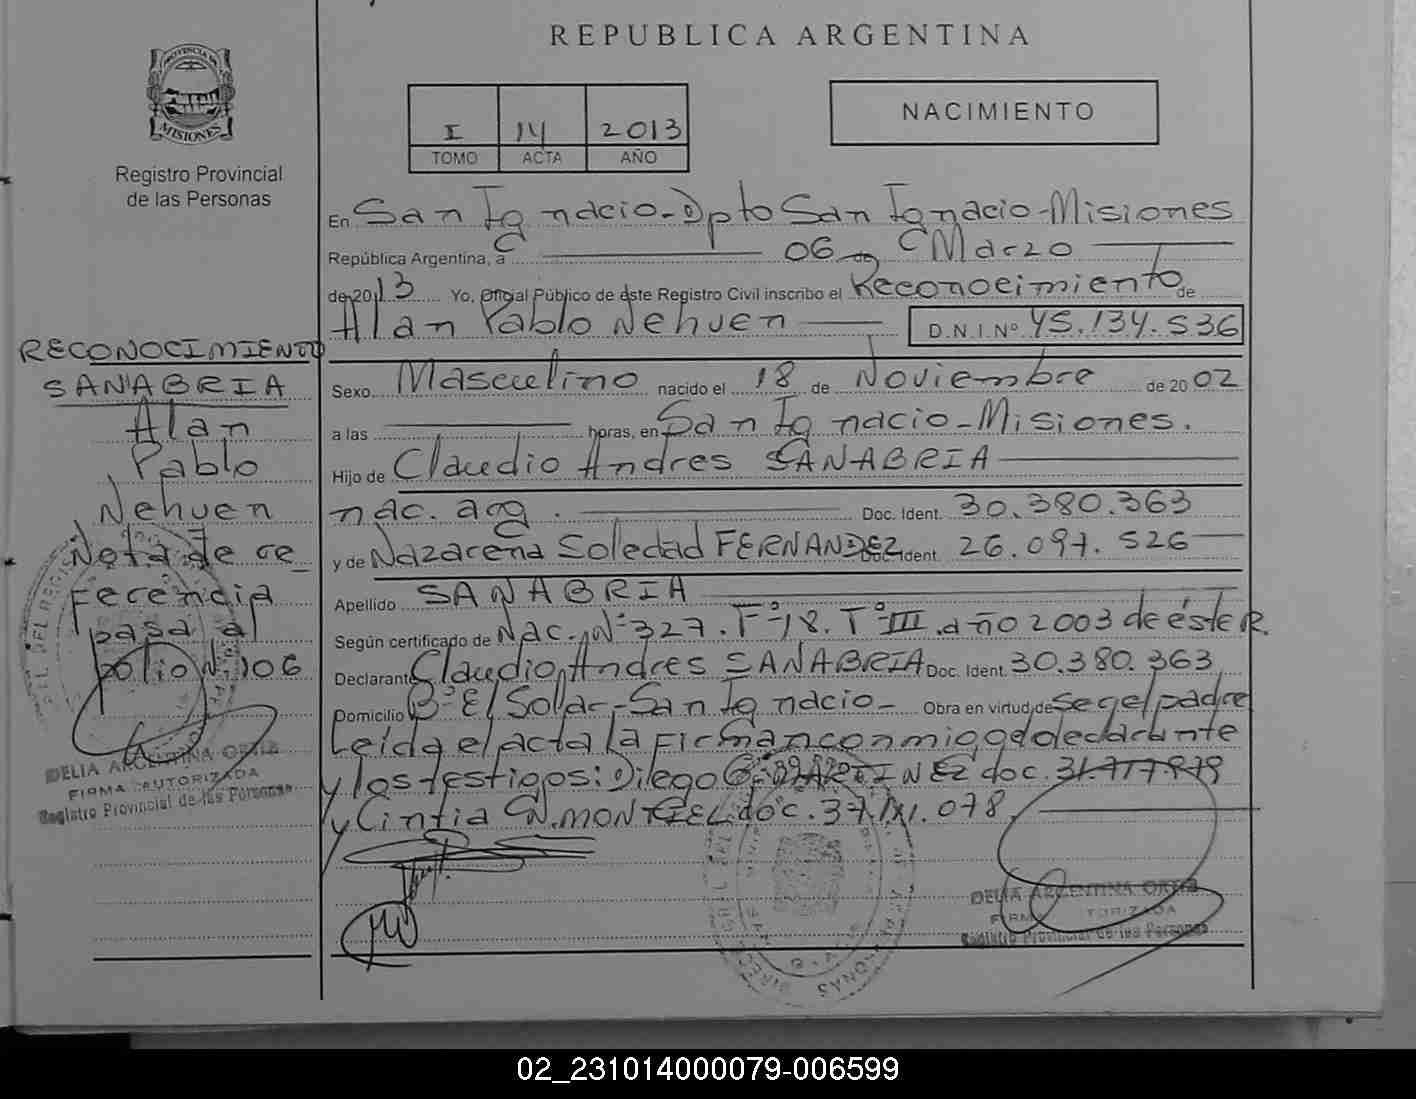 REPUBLICA ARGENTINA
PROVINCIA DE
MISIONES
Registro Provincial
de las Personas
I 14 2013
TOMO ACTA AÑO
NACIMIENTO
En San Ignacio - Dpto San Ignacio - Misiones
República Argentina, a 06 de Marzo
de 2013 Yo, Oficial Público de éste Registro Civil inscribo el Reconocimiento de
Alan Pablo Nehuen D.N.I. Nº 45.134.536
Sexo Masculino nacido el 18 de Noviembre de 2002
a las horas, en San Ignacio - Misiones.
Hijo de Claudio Andres SANABRIA
nac. arg. Doc. Ident. 30.380.363
y de Nazarena Soledad FERNANDEZ Doc. Ident. 26.097.526
Apellido SANABRIA
Según certificado de Nac. Nº 327. Fº 18. Tº III. año 2003 de éste R.
Declarante Claudio Andres SANABRIA Doc. Ident. 30.380.363
Domicilio Bº El Solar - San Ignacio - Obra en virtud de ser el padre
Leída el acta la firman conmigo el declarante
y los testigos: Diego doc. 31.717.979
y Cintia N. MONTIEL doc. 37. .078
RECONOCIMIENTO
SANABRIA
Alan
Pablo
Nehuen
Nota de re_
ferencia
pasa al
folio Nº 106
DELIA ARGENTINA ORTIZ
FIRMA AUTORIZADA
Registro Provincial de las Personas
DELIA ARGENTINA ORTIZ
FIRMA AUTORIZADA
Registro Provincial de las Personas
02_231014000079-006599